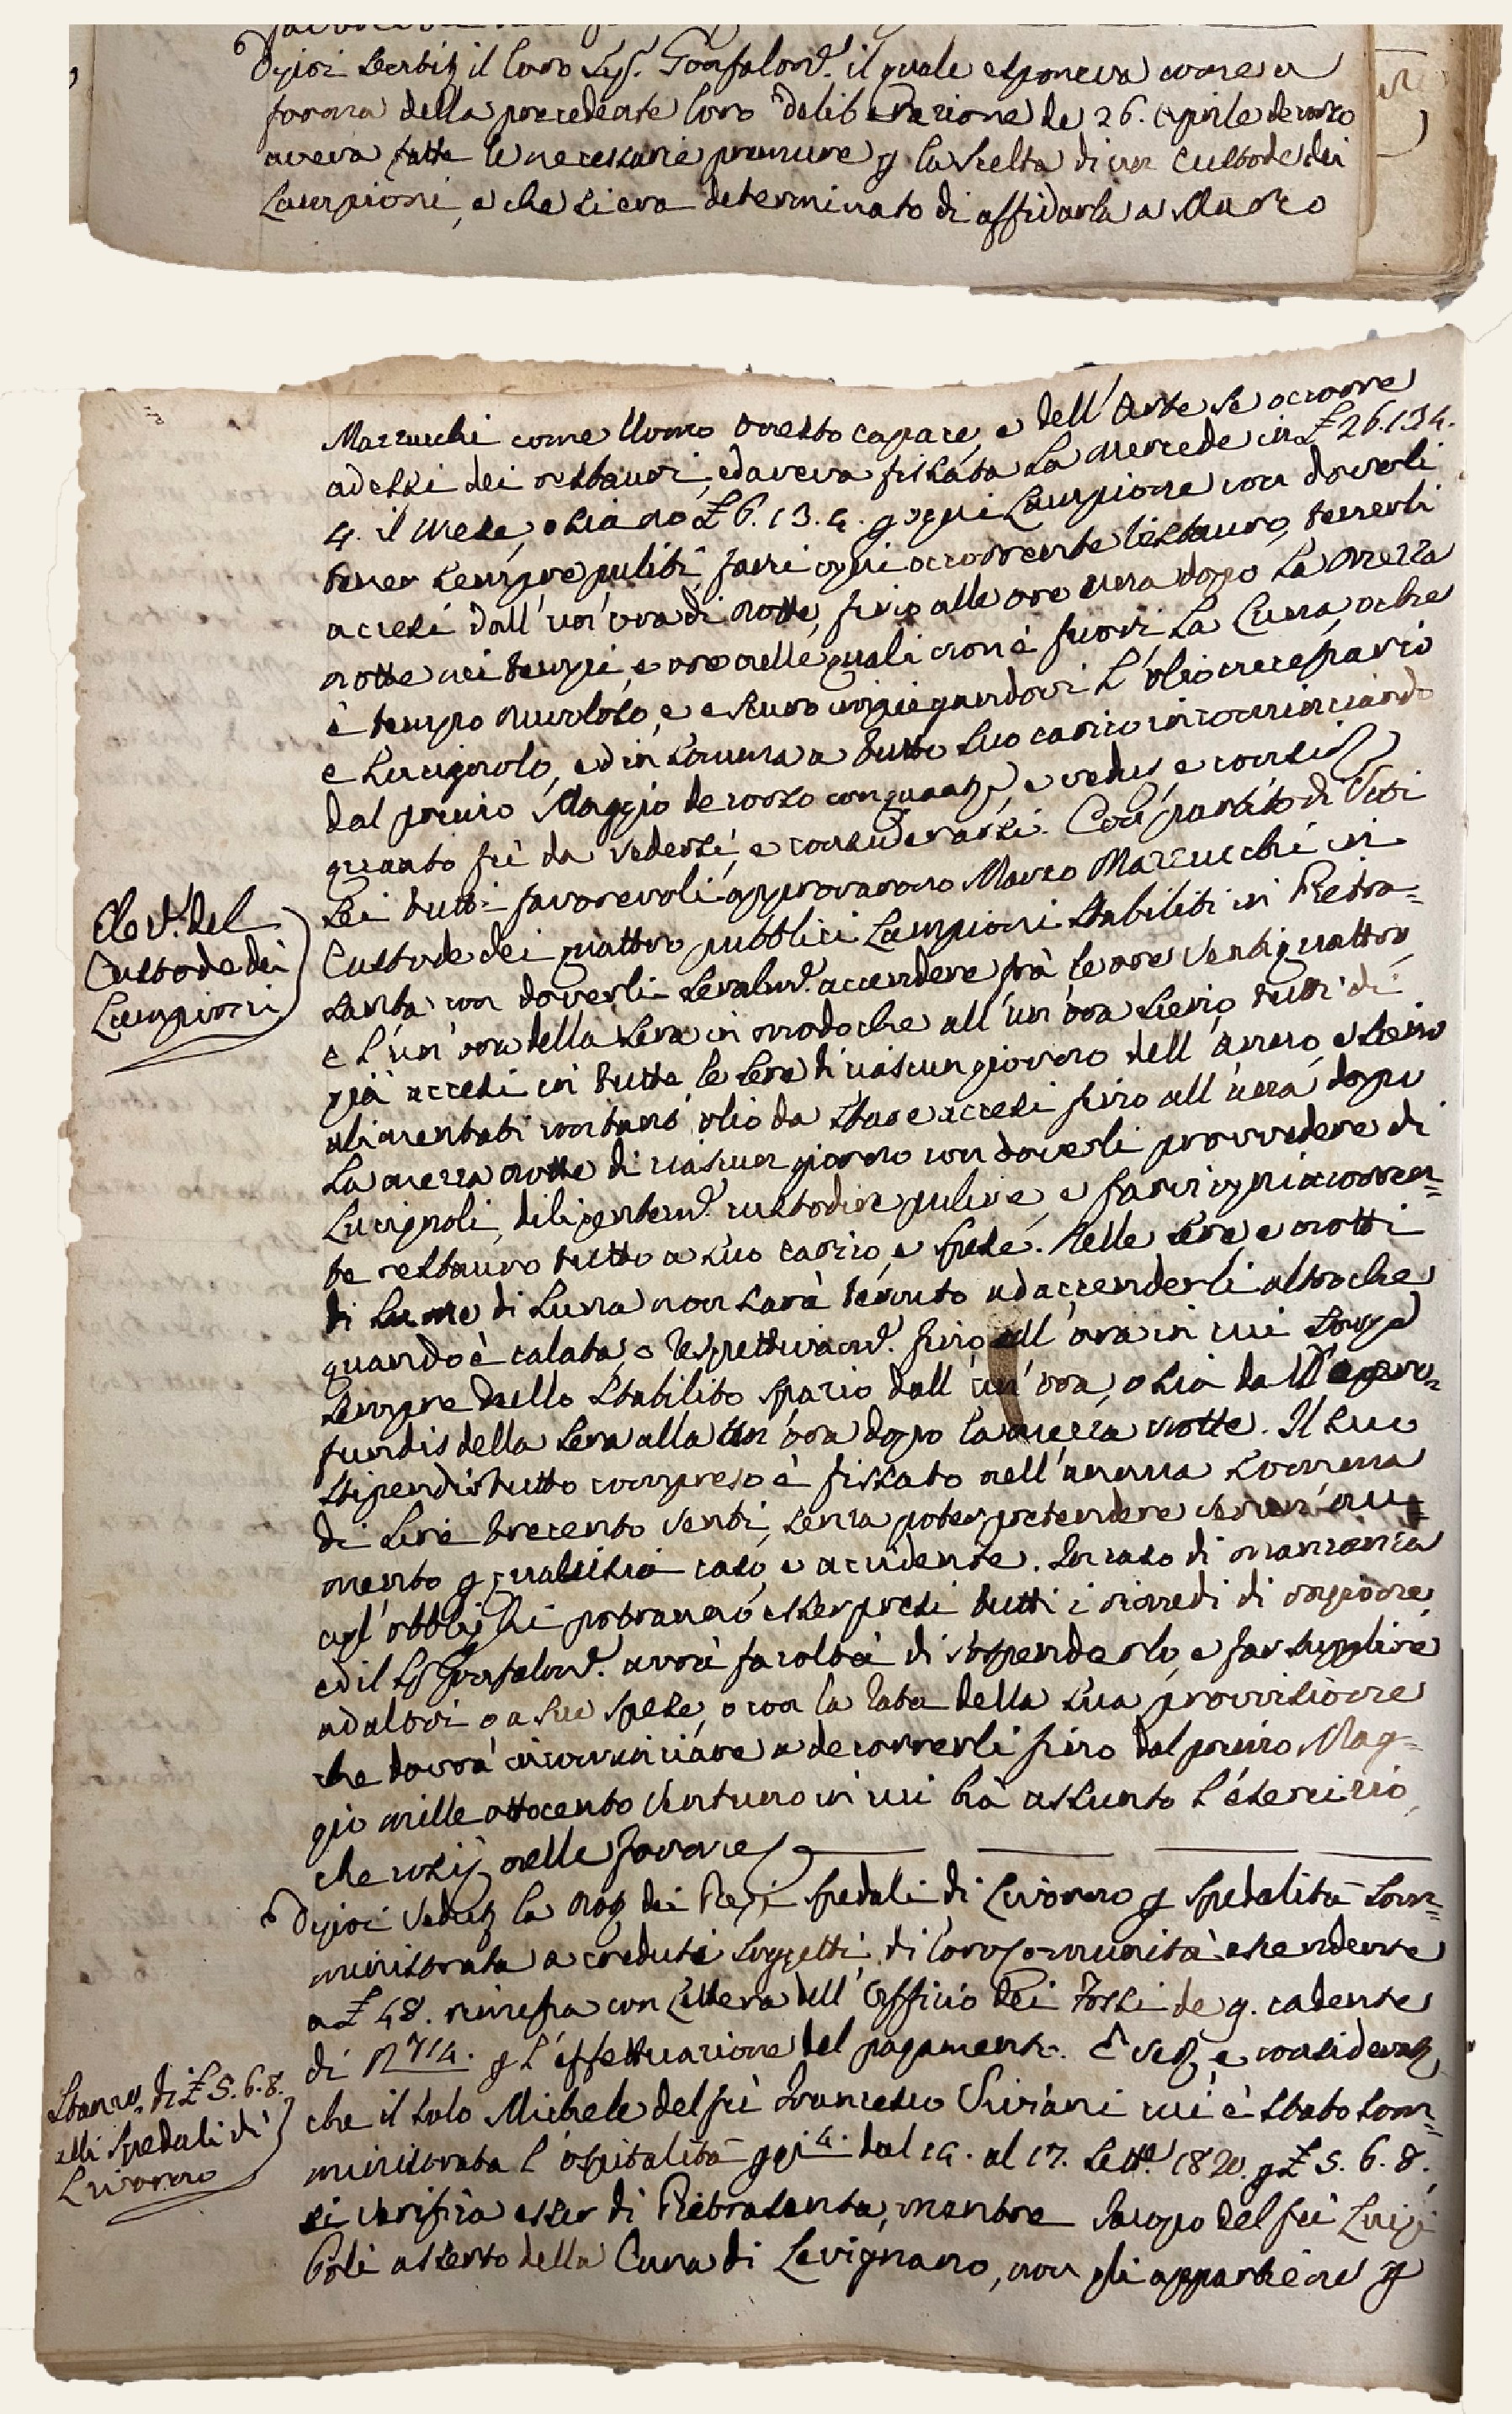 Dipoi sentito il loro Sig. Gonfalon.e il quale esponeva come a
forma della precedente loro deliberazione de 26. Aprile decorso
aveva fatte le necessarie premure p la scelta di un Custode dei
Lampioni, e che si era determinato di affidarla a Marco
Mazzucchi come Uomo onesto capace, e dell'Arte se occorre
adessi dei restauri, ed aveva fissata la mercede in £ 26.13.4.
4. il mese, o sia no £ 6.13.4. p ogni Lampione con doverli
tener sempre puliti, farvi ogni occorrente restauro, tenerli
accesi dall'un'ora di notte, fino alle ore una dopo la mezza
notte nei tempi, e ore nelle quali non è fuori la Luna, o che
è tempo nuvoloso, e oscuro impiegandovi l'olio necessario
e Lucignolo, ed in somma a tutto suo carico incominciando
dal primo Maggio decorso
quanto fù da vedersi, e considerarsi. Con partito di Voti
Sei tutti favorevoli approvarono Marco Mazzucchi in
Custode dei quattro pubblici Lampioni stabiliti in Pietra=
santa con doverli seralm.e accendere frà le ore ventiquattro
e l'un'ora della sera in modo che all'un'ora sieno tutti di
già accesi in tutte le sere di ciascun giorno dell'anno, e sieno
alimentati con tant'olio da stare accesi fino all'una dopo
la mezza notte di ciascun giorno con doverli provvedere di
Lucignoli, diligentem.e custodire pulire, e farvi ogni occorren=
te restauro tutto a suo carico, e spese. Nelle sere e notti
di Lume di Luna non sarà tenuto ad accenderli altro che
quando è calata, o respettivam.e fino all'ora in cui sorge
sempre dello stabilito spazio dall'un'ora, o sia da De pro=
fundis della sera alla un'ora dopo la mezza notte. Il suo
stipendio tutto compreso è fissato nell'annua somma
di Lire trecento venti, senza poter pretendere verun'au=
mento p qualsisia caso, e accidente. In caso di mancanza
agl'obblighi potranno esser presi tutti i rimedi di ragione
ed il Sig Gonfalon.e avrà facoltà di sospenderlo, e far supplire
ad altri o a sue spese, o con la rata della sua provvisione
che dovrà incominciare a decorrerli fino dal primo Mag=
gio mille ottocento ventuno in cui hà assunto l'esercizio,
che così nelle forme
Elez.e del
Custode dei
Lampioni
Dipoi veduta la nota dei Regi Spedali di Livorno p Spedalità som=
ministrata a creduti soggetti di loro Comunità ascendente
a £ 48. rimessa con Lettera dell'Offizio dei Fossi de 9. cadente
di N 714. p l'effettuazione del pagamento. E ved, e considerato
che il solo Michele del fù Francesco Viviani cui è stato som=
ministrata l'ospitalità p gi 4. dal 14. al 17. Sett.e 1820. p £ 5.6.8.,
si verifica esser di Pietrasanta, mentre Jacopo del fù Luigi
Poli asserto della Cura di Levignano, non gli appartiene p
Stanz. di £ 5.6.8.
alli Spedali di
Livorno